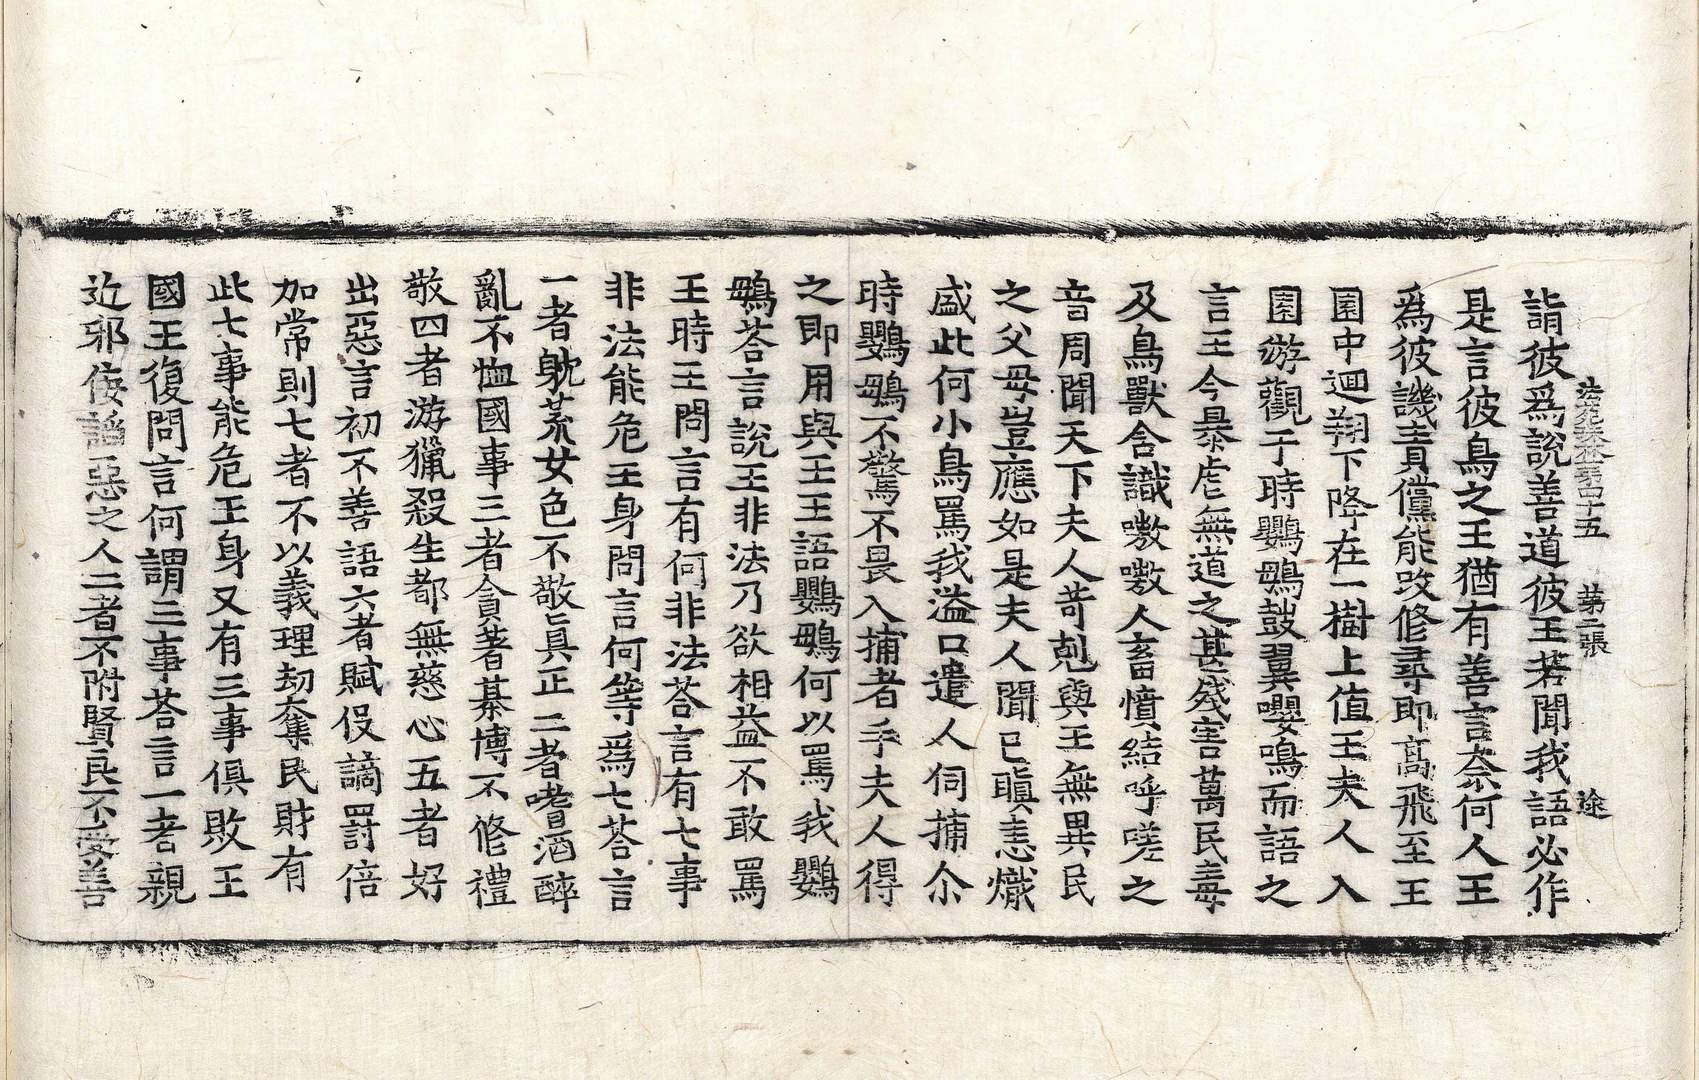 法苑珠林第四十五　第二張　途
詣彼爲說善道彼王若聞我語必作
是言彼鳥之王猶有善言柰何人王
爲彼譏責儻能改修尋即高飛至王
園中迴翔下降在一樹上值王夫人入
園游觀于時鸚鵡鼓翼嚶鳴而語之
言王今暴虐無道之甚殘害萬民毒
及鳥獸含識嗷嗷人畜憤結呼嗟之
音周聞天下夫人苛剋與王無異民
之父母豈應如是夫人聞已瞋恚熾
盛此何小鳥罵我溢口遣人伺捕尒
時鸚鵡不驚不畏入捕者手夫人得
之即用與王王語鸚鵡何以罵我鸚
鵡荅言說王非法乃欲相益不敢罵
王時王問言有何非法荅言有七事
非法能危王身問言何等爲七荅言
一者躭荒女色不敬眞正二者嗜酒醉
亂不恤國事三者貪著棊博不修禮
敬四者游獵殺生都無慈心五者好
出惡言初不善語六者賦役謫罰倍
加常則七者不以義理劫奪民財有
此七事能危王身又有三事俱敗王
國王復問言何謂三事荅言一者親
近邪佞謟惡之人二者不附賢良不受善